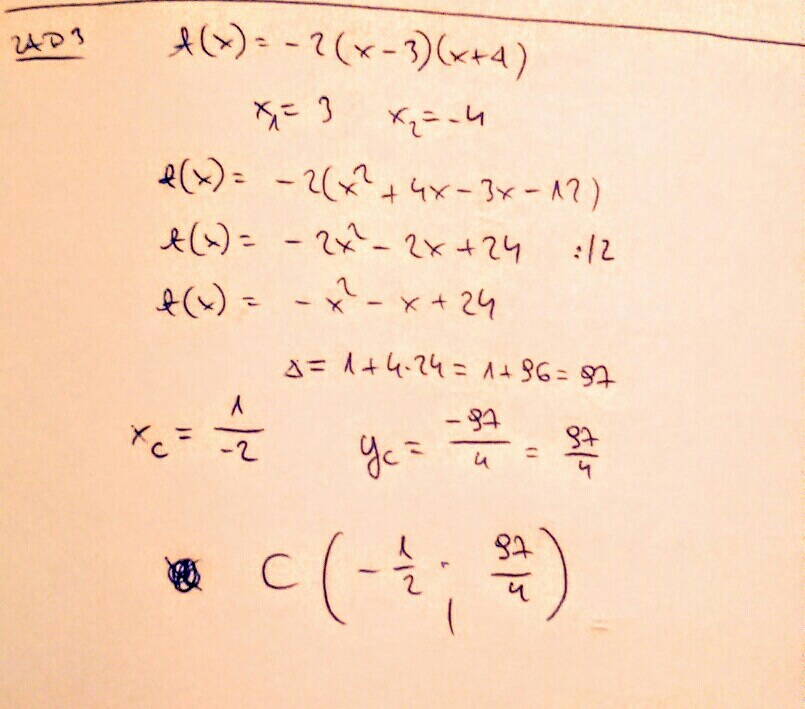 ZAD 3 f(x) = -2(x-3)(x+4)
x₁ = 3 x₂ = -4
f(x) = -2(x² + 4x - 3x - 12)
f(x) = -2x² - 2x + 24 :/2
f(x) = -x² - x + 24
Δ = 1+4·24 = 1+96 = 97
x_c = 1/-2 y_c = -97/4 = 97/4
C(-1/2 ; 97/4)